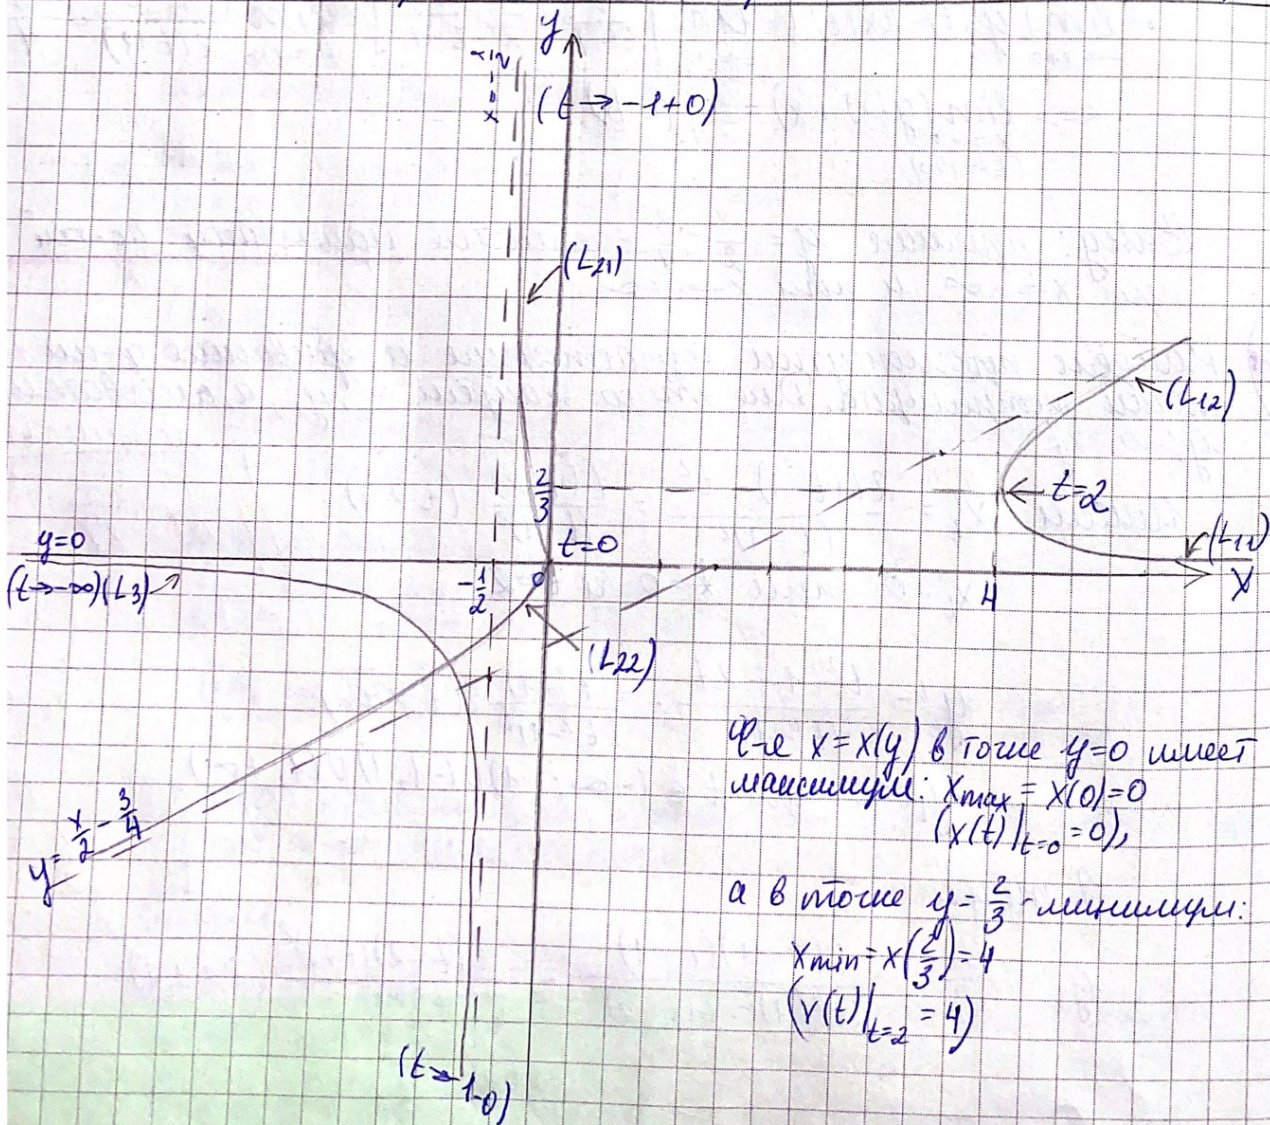 y
x = -1/2
(t → -1+0)
(L21)
(L12)
2/3
t=2
y=0
t=0
(L11)
(t→-∞)(L3)
-1/2
0
4
X
(L22)
y = x/2 - 3/4
Ф-я x = x(y) в точке y=0 имеет
максимум: xmax = x(0)=0
(x(t)|t=0 = 0),
а в точке y = 2/3 - минимум:
xmin = x(2/3) = 4
(x(t)|t=2 = 4)
(t→-1-0)